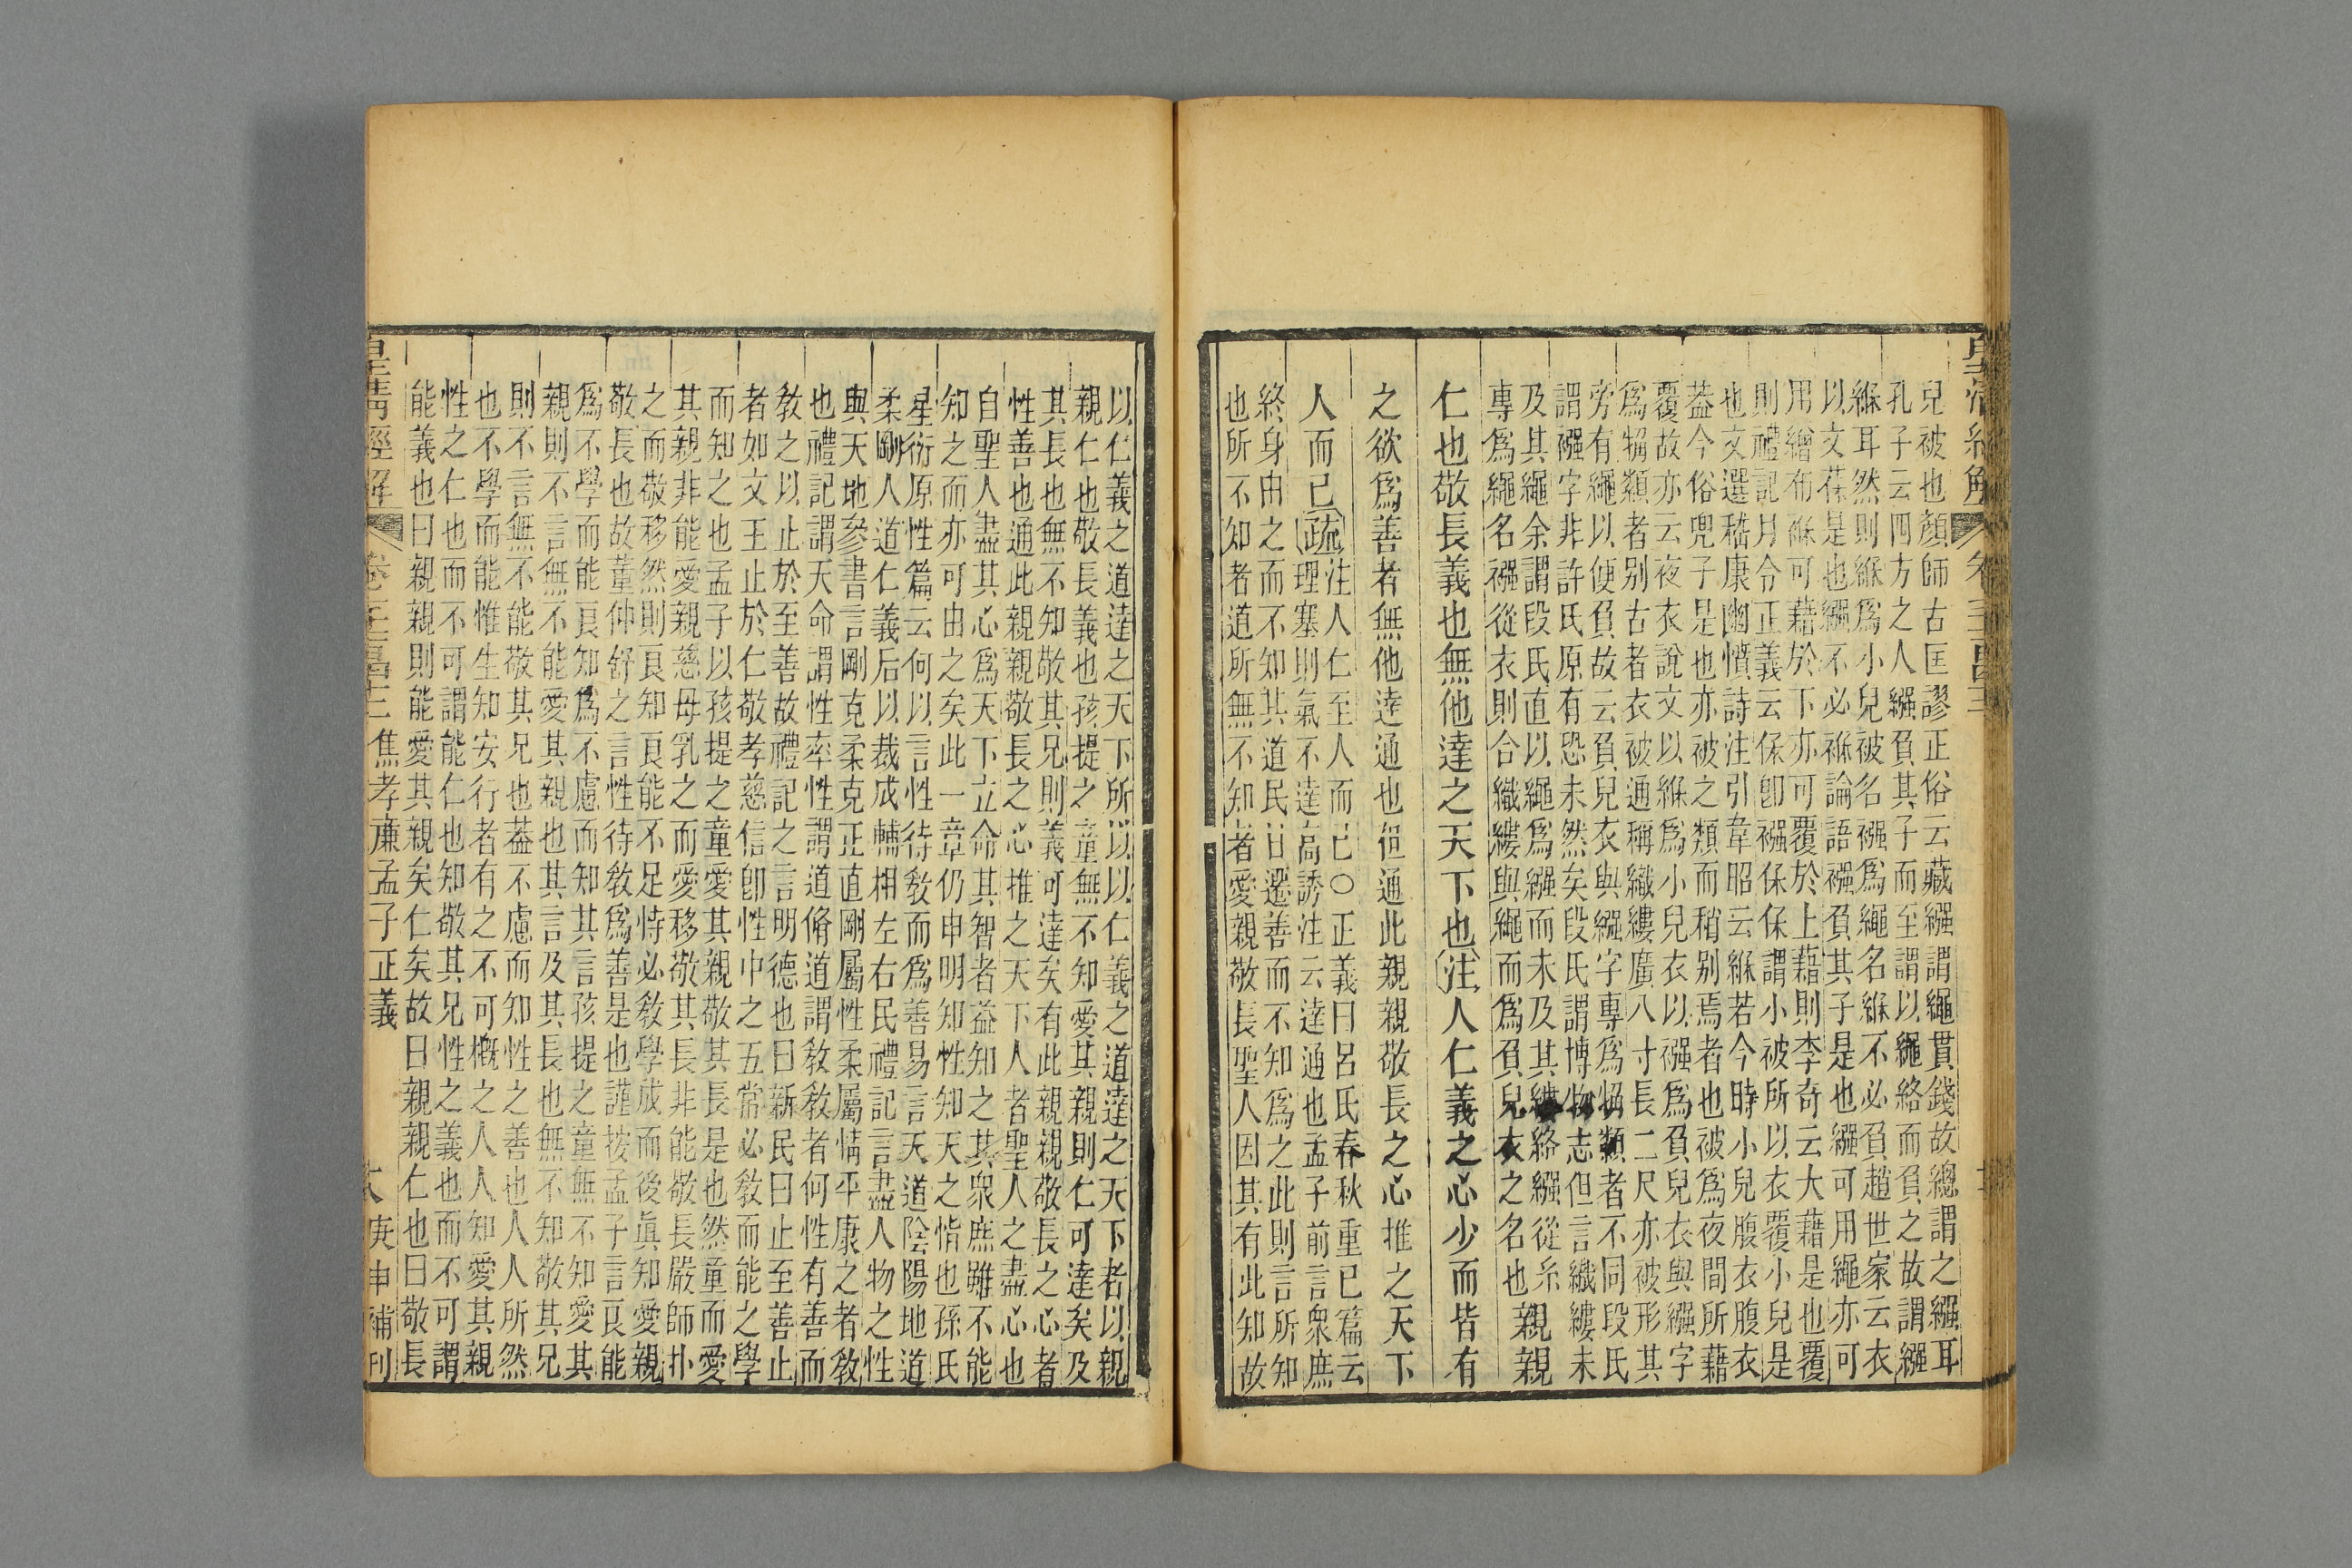 皇清經解 卷
兒被也顏師古匡謬正俗云藏繈謂繩貫錢故總謂之繈耳
孔子云四方之人繈負其子而至謂以繩絡而負之故謂繈
緥耳然則緥爲小兒被名襁爲繩名緥不必負趙世家云衣
以文葆是也繈不必褓論語襁負其子是也繈可用繩亦可
用繒布緥可藉於下亦可覆於上藉則李奇云大藉是也覆
則禮記月令正義云保卽襁保保謂小被所以衣覆小兒是
也文選嵇康幽憤詩注引韋昭云緥若今時小兒腹衣腹衣
葢今俗兜子是也亦被之類而稍別焉者也被爲夜間所藉
覆故亦云夜衣說文以緥爲小兒衣以襁爲負兒衣與繈字
爲觕類者別古者衣被通稱織縷廣八寸長二尺亦被形其
旁有繩以便負故云負兒衣與繈字專爲觕類者不同段氏
謂襁字非許氏原有恐未然矣段氏謂博物志但言織縷未
及其繩余謂段氏直以繩爲繈而未及其縷絡繈從糸
專爲繩名襁從衣則合織縷與繩而爲負兒衣之名也
親親
仁也敬長義也無他達之天下也注人仁義之心少而皆有
之欲爲善者無他達通也但通此親親敬長之心推之天下
人而已疏
注人仁至人而已○正義曰呂氏春秋重已篇云
理塞則氣不達高誘注云達通也孟子前言衆庶
終身由之而不知其道民日遷善而不知爲之此則言所知
也所不知者道所無不知者愛親敬長聖人因其有此知故
以仁義之道達之天下所以以仁義之道達之天下者以親
親仁也敬長義也孩提之童無不知愛其親則仁可達矣及
其長也無不知敬其兄則義可達矣有此親親敬長之心者
性善也通此親親敬長之心推之天下人者聖人之盡心也
自聖人盡其心爲天下立命其智者益知之其衆庶雖不能
知之而亦可由之矣此一章仍申明知性知天之恉也孫氏
星衍原性篇云何以言性待敎而爲善易言天道陰陽地道
柔剛人道仁義后以裁成輔相左右民禮記言盡人物之性
與天地參書言剛克柔克正直剛屬性柔屬情平康之者敎
也禮記謂天命謂性率性謂道脩道謂敎敎者何性有善而
敎之以止於至善故禮記之言明德也曰新民曰止至善止
者如文王止於仁敬孝慈信卽性中之五常必敎而能之學
而知之也孟子以孩提之童愛其親敬其長是也然童而愛
其親非能愛親慈母乳之而愛移敬其長非能敬長嚴師扑
之而敬移然則良知良能不足恃必敎學成而後眞知愛親
敬長也故董仲舒之言性待敎爲善是也謹按孟子言良能
爲不學而能良知爲不慮而知其言孩提之童無不知愛其
親則不言無不能愛其親也其言及其長也無不知敬其兄
則不言無不能敬其兄也葢不慮而知性之善也人人所然
也不學而能惟生知安行者有之不可概之人人知愛其親
性之仁也而不可謂能仁也知敬其兄性之義也而不可謂
能義也曰親親則能愛其親矣仁矣故曰親親仁也曰敬長
皇清經解 卷 焦孝廉孟子正義 庚申補刊